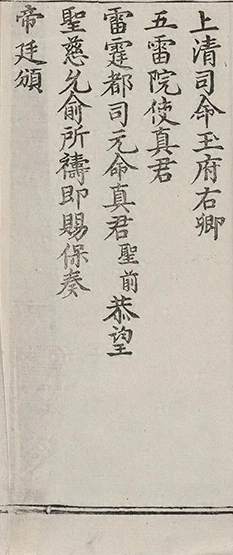 上清司命玉府右卿
五雷院使真君
雷霆都司元命真君聖前恭望
聖慈允俞所禱即賜保奏
帝廷頒